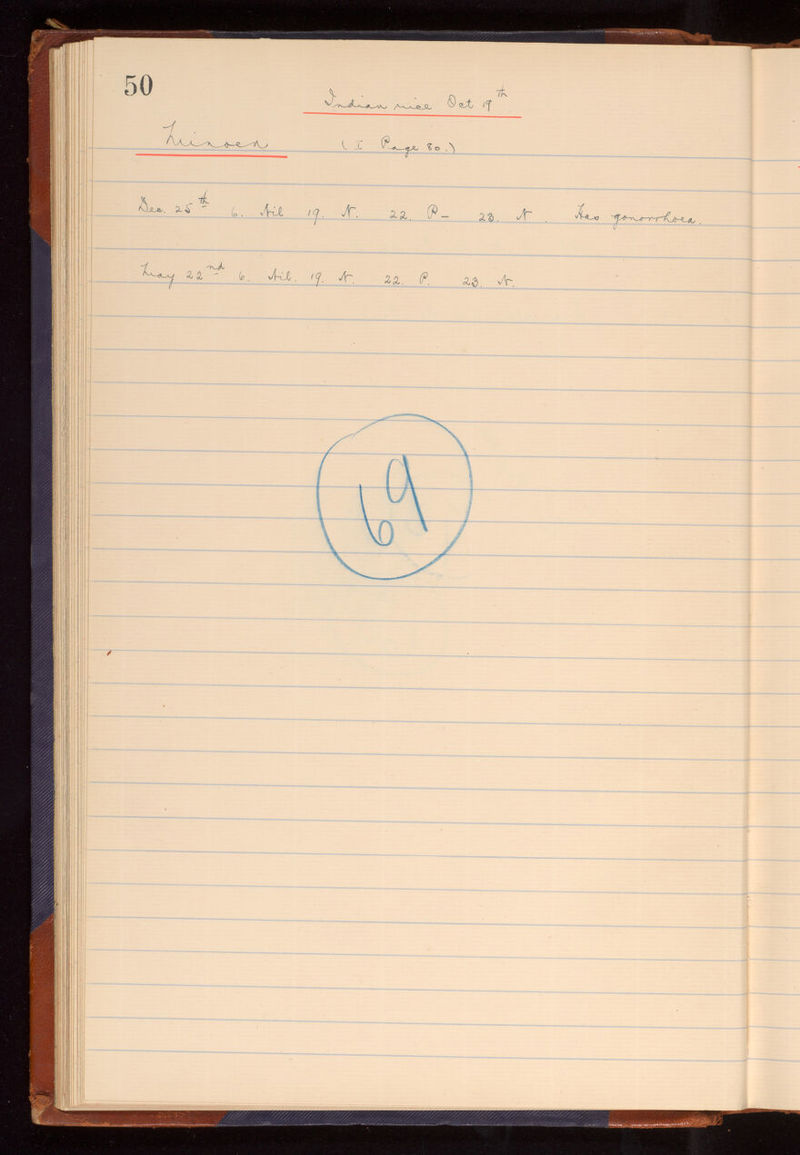 50
Indian rice Oct 19th
Minoen (I Page 80.)
Dec. 25th 6. Nil 19. N. 22. P– 23. N. Has gonorrhoea.
May 22nd 6. Nil. 19. N. 22. P. 23. N.
69